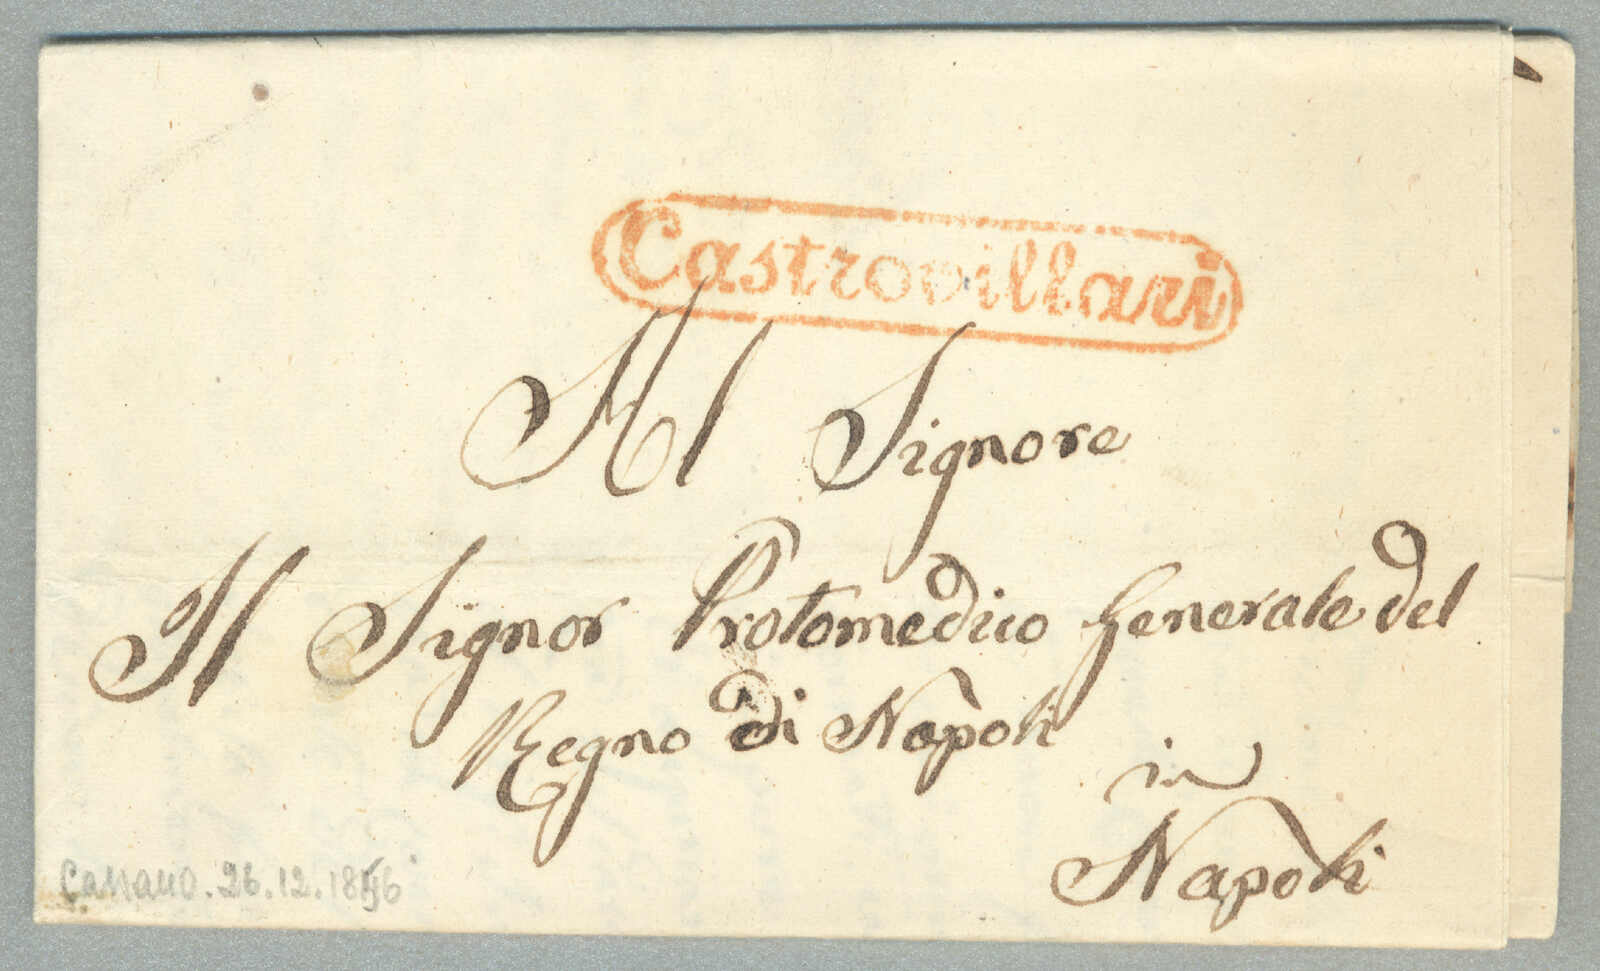 Castrovillari
Al Signore
Il Signor Protomedico Generale del
Regno di Napoli
in
Napoli
Cassano. 26.12.